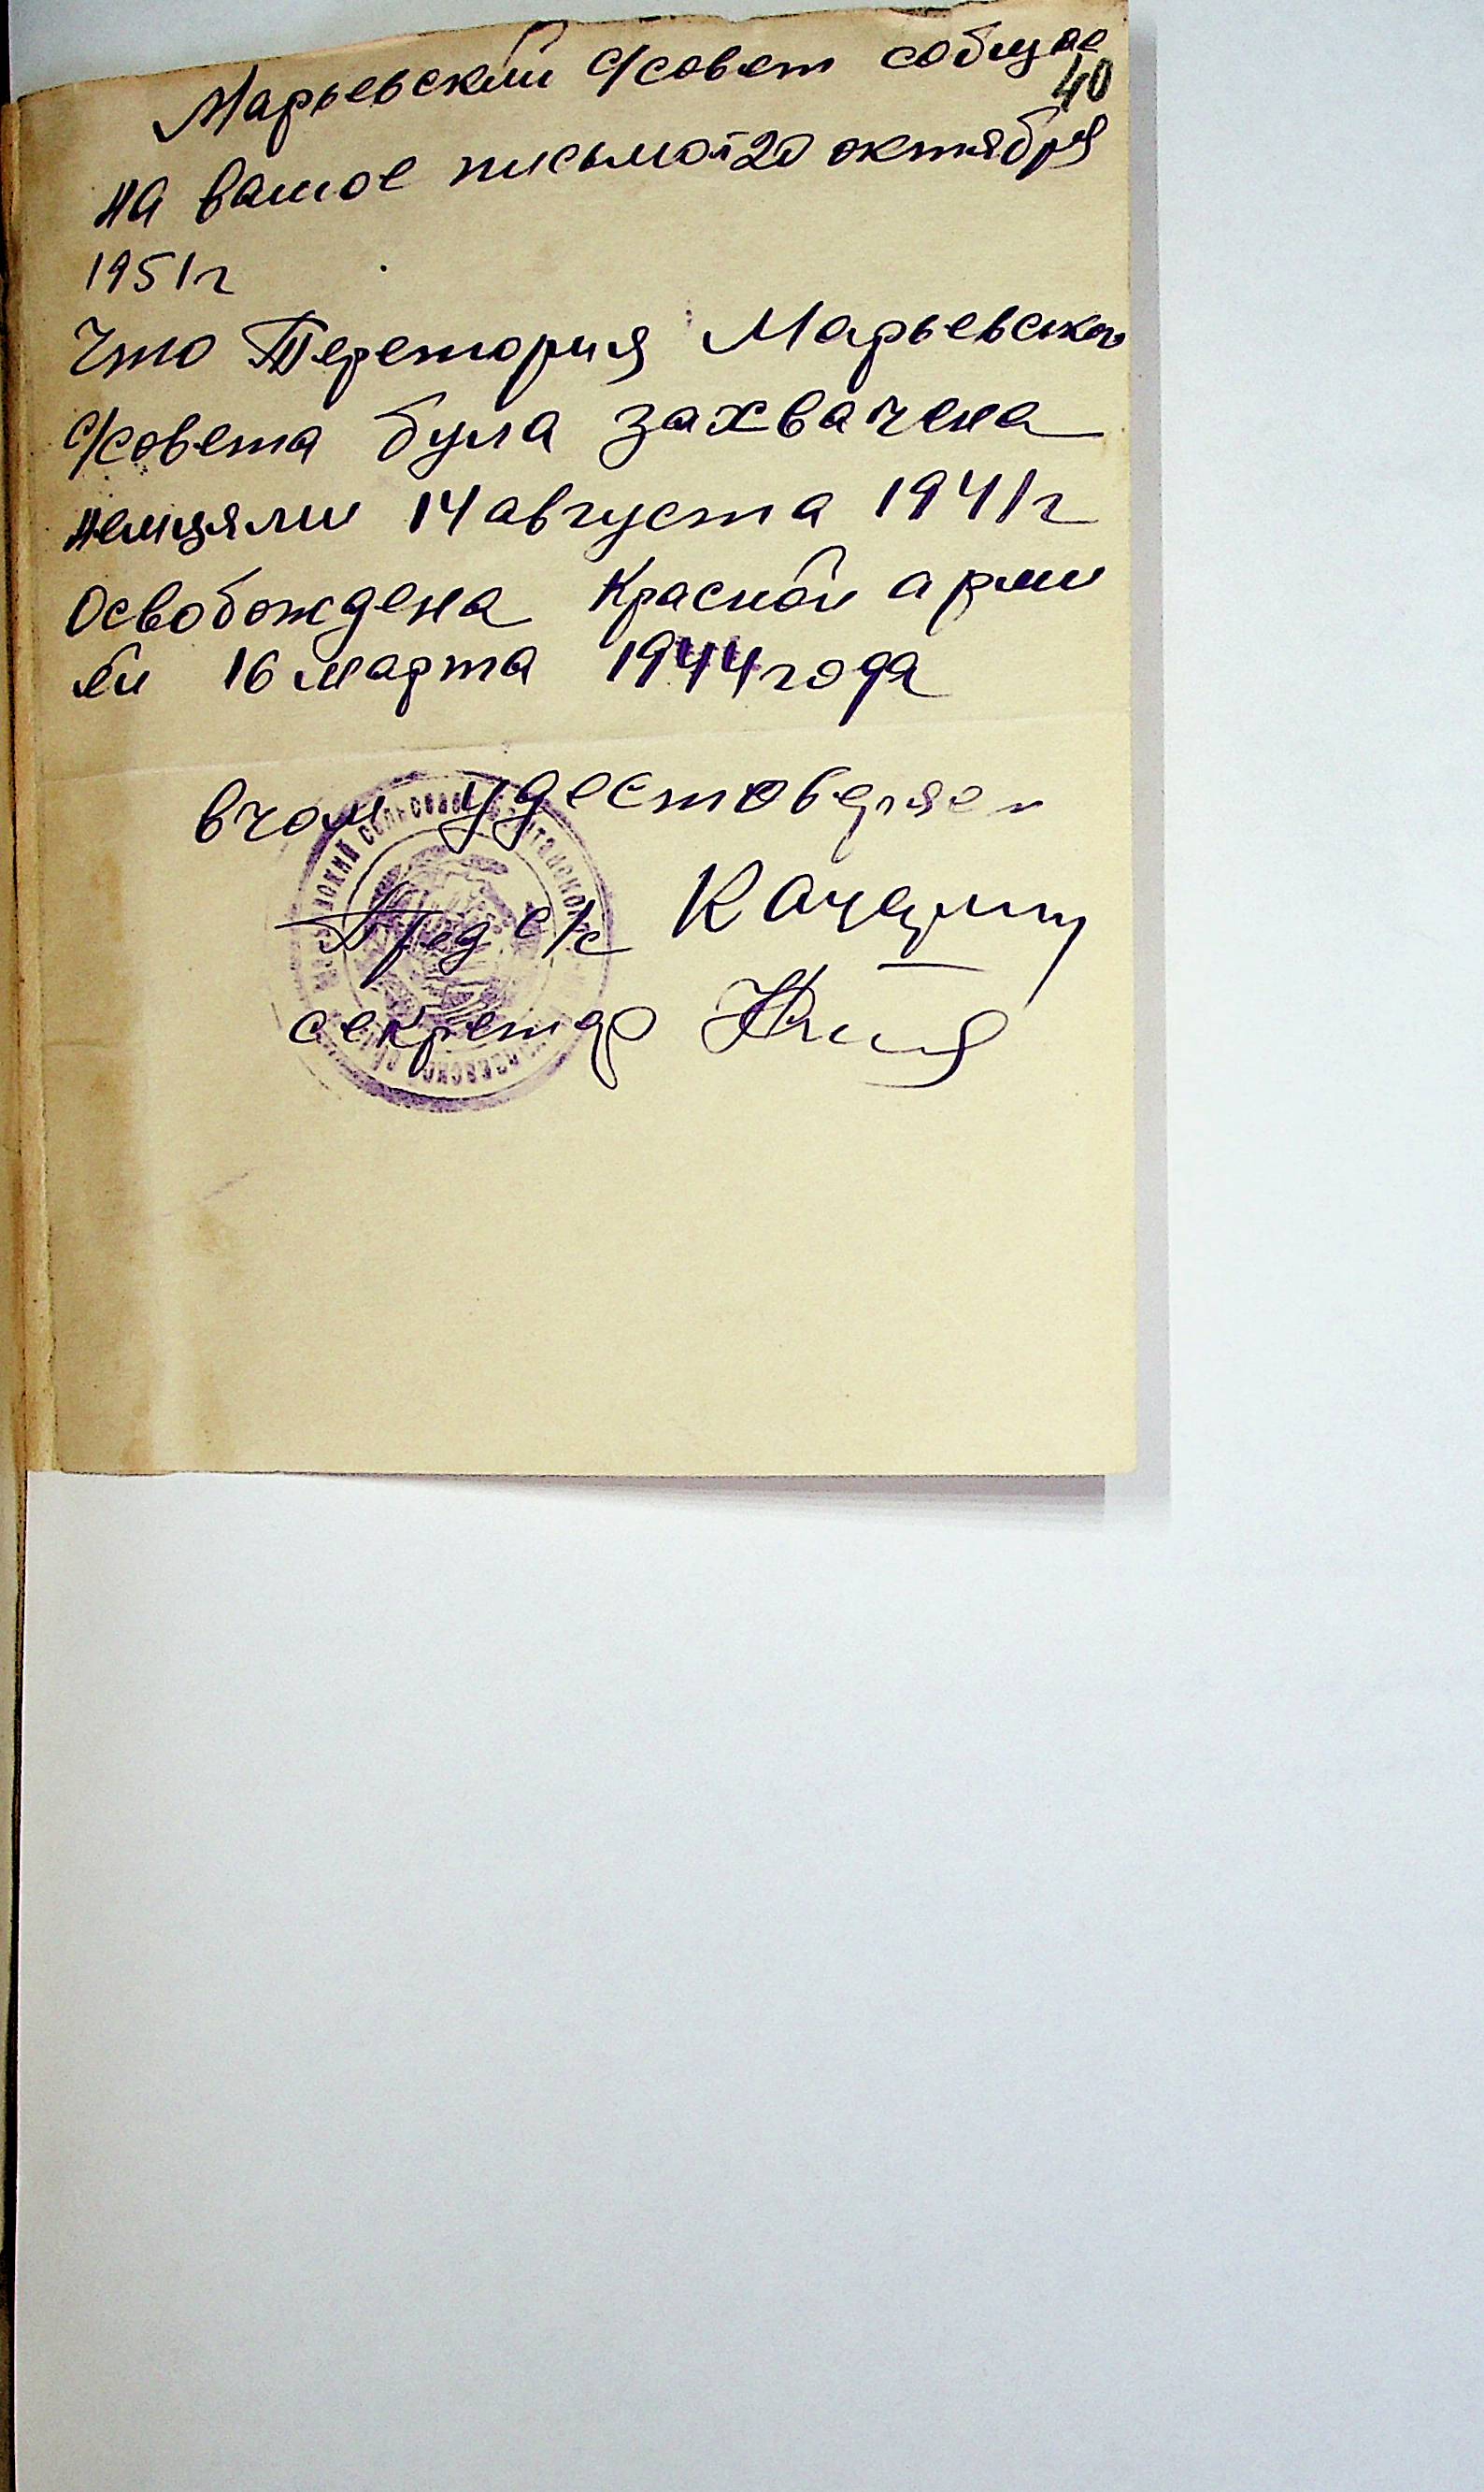 Марьевский с/совет собщае
40
на вашое письмо от 20 октября
1951 г
Что Перетория Марьевского
с/совета була захвачена
немцями 14 августа 1941 г
Освобождена Красной арми
ей 16 марта 1944 года
в чом удестоверяем
Пред с/с
секретар